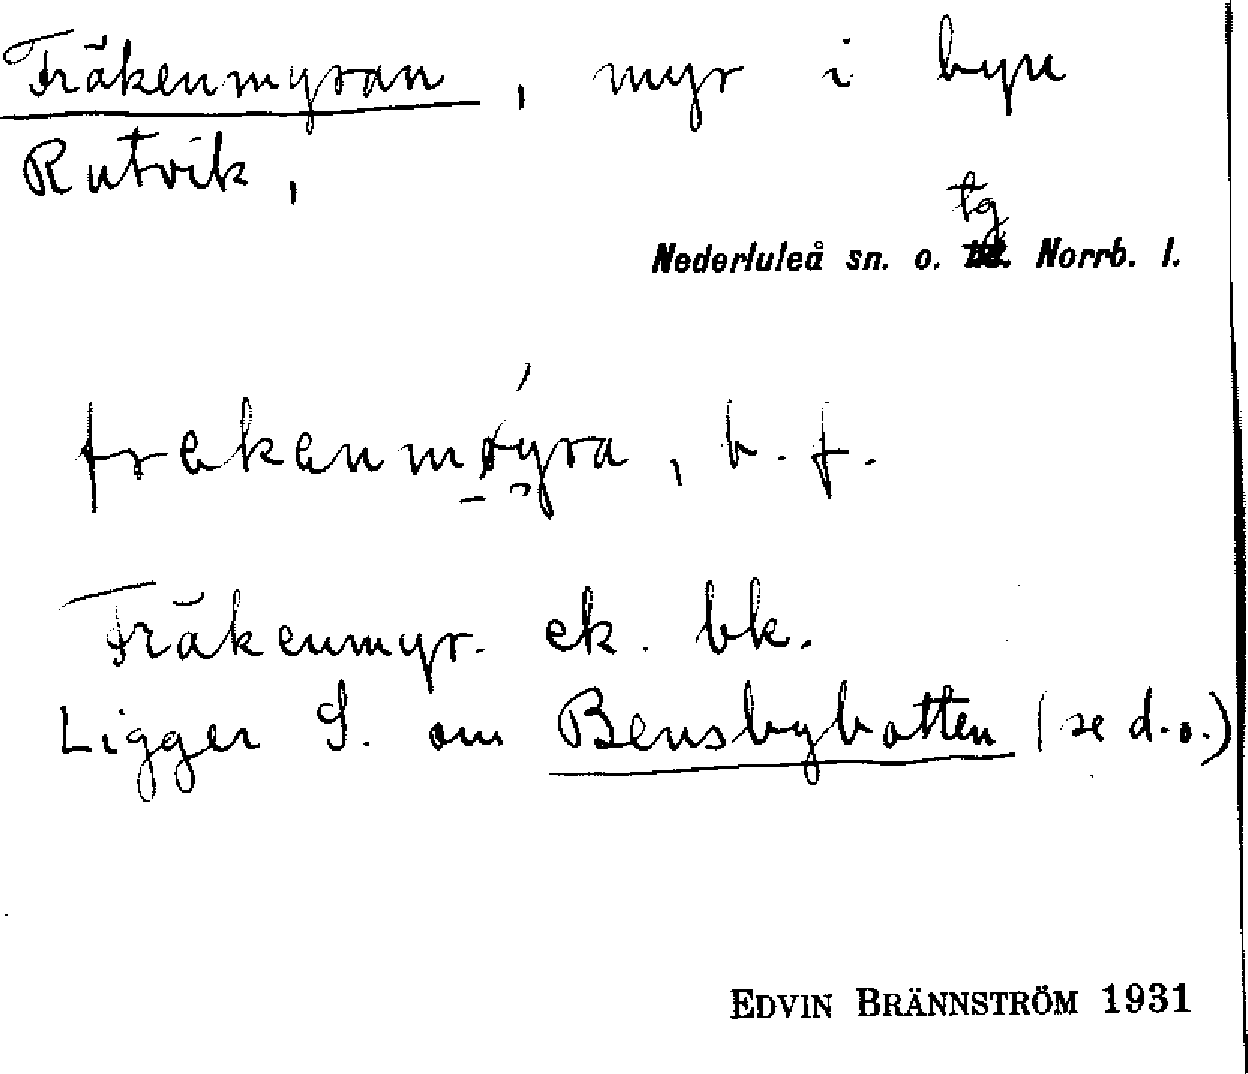 Fräkenmyran, myr i byn
Rutvik,
tg
Nederluleå sn. o. Norrb. l.
frekenmøyra, b. f.
Fräkenmyr. ek. bk.
Ligger S. om Bensbybotten (se d.o.)
EDVIN BRÄNNSTRÖM 1931